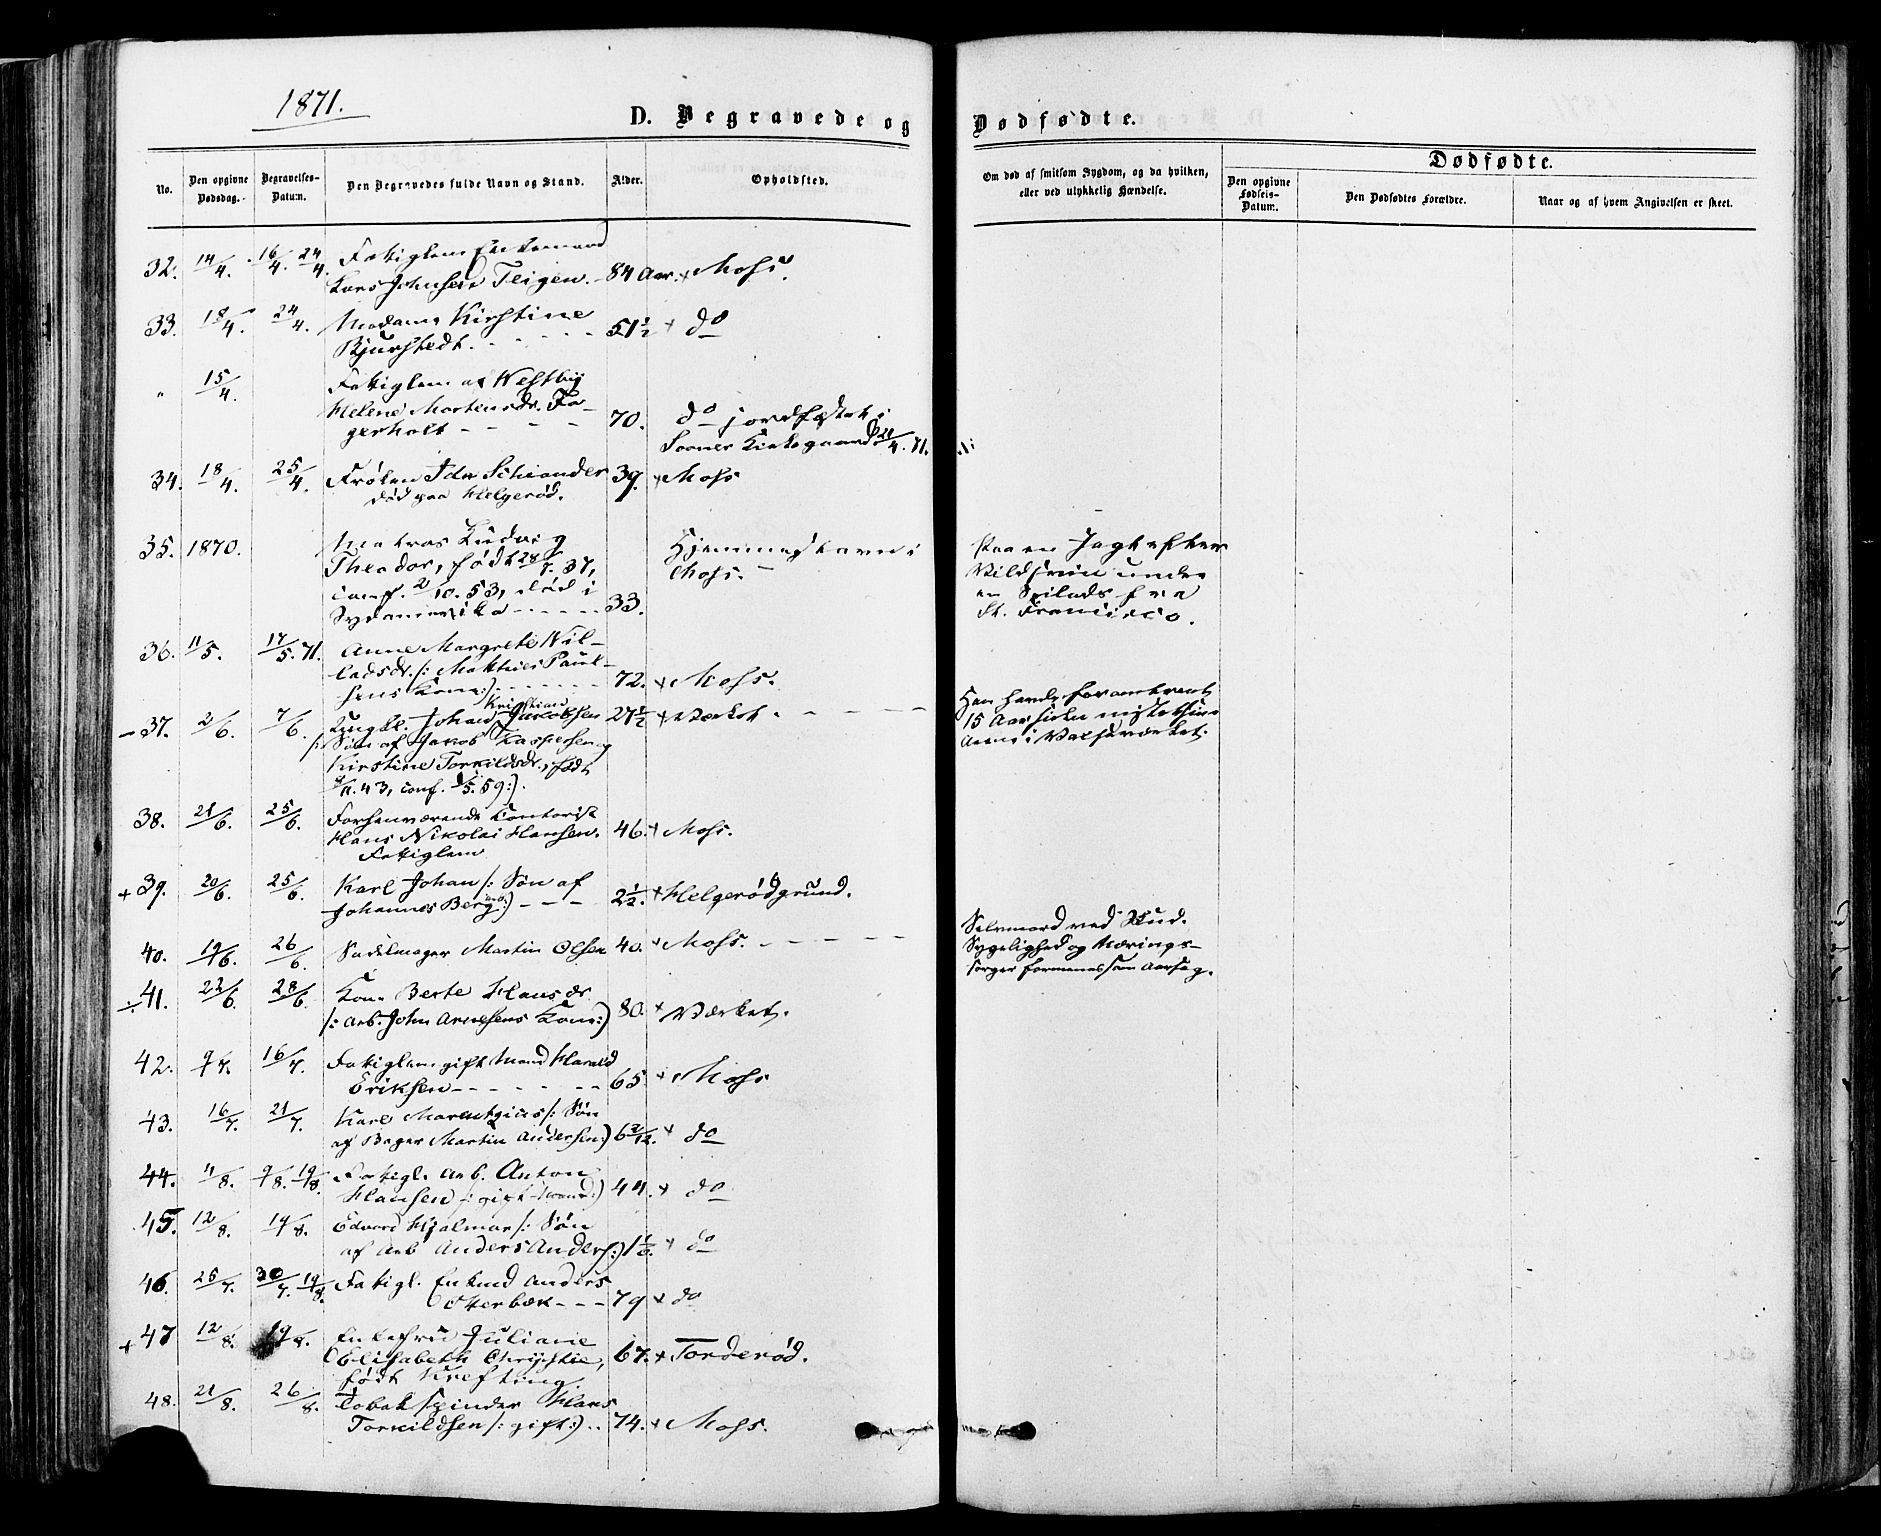 1871.
D. Begravede og Dødfødte.
No.
Den opgivne Dødsdag.
Begravelses-Datum.
Den Begravedes fulde Navn og Stand.
Alder.
Opholdsted.
Om død af smitsom Sygdom, og da hvilken, eller ved ulykkelig Hændelse.
Dødfødte.
Den opgivne Fødsels-Datum.
Den Dødfødtes Forældre.
Naar og af hvem Angivelsen er skeet.
32. 14/4. 16/4. 24/4. Fattiglem Enkemand
Lars Johnsen Teigen. 84 Aar. + Moss.
33. 18/4. 24/4. Madame Kirstine
Bjurstedt. - - - - 51 1/2 + do
" 15/4. Fattiglem af Westby
Helene Martinsdr. Fa-
gerholt - - - - 70. do jordfæstet i
Sooner Kirkegaard 21/4.71.
34. 18/4. 25/4. Frøken Ida Schiander 39. + Moss
død paa Helgerød.
35. 1870. Matros Ludvig
Theodor, født 28/7.37,
conf. 2/10.53, død i
Sydamerika - - - - 33.
Hjemmehavn i
Moss.
Paa en Jagt efter
Vildsvin under
en Seilads fra
St. Francisco.
36. 11/5. 17/5.71. Anne Margrete Wil-
ladsdr. /: Mathies Paul-
sens Kone:/ - - - - 72. + Moss.
- 37. 2/6. 7/6. Ungkl. Johan Kristian Jakobsen 27 1/2 + Værket. - - - -
/: Søn af Jakob Kaspersen og
Kirstine Torkildsdr., født
/11.43, conf. /5.59:/.
Han havde for omtrent
15 Aar siden mistet sine
Arme i Valseværket.
38. 21/6. 25/6. Forhenværende Contorist
Hans Nikolai Hansen. 46. + Moss.
Fattiglem
+ 39. 20/6. 25/6. Karl Johan /: Søn af
Johannes Berg:/ - - - 2 1/2. + Helgerødgrund.
40. 19/6. 26/6. Sadelmager Martin Olsen 40. + Moss. - - - -
Selvmord ved Skud.
Sygelighed og Nærings-
sorger formenes som Aarsag.
÷ 41. 22/6. 28/6. Kone Berte Hansdr.
/: Arb. John Arnesens Kone:/ 80. + Værket.
42. 9/7. 16/7. Fattiglem gift Mand Harald
Eriksen - - - - 65 + Moss
43. 16/7. 21/7. Karl /: Søn
af Bager Martin Andersen:/ 6 2/12. + do
44. 11/8. 9/8. 19/8. Fattigl. Arb. Anton
Hansen /: gift Mand:/ 44. + do
45. 12/8. 19/8. Edvard Hjalmar /: Søn
af Arb Anders Anders:/ + do
46. 25/7. 30/7. 19/8. Fattigl. Enkmd Anders
Otterbæk - - - 79 + do
+ 47 12/8. 19/8. Enkefru Juliane
Elisabeth Chrystie, 67. + Torderød.
født Krefting.
48. 21/8. 26/8. Tobakspinder Hans
Torkildsen /: gift:/ .. 74. + Moss.